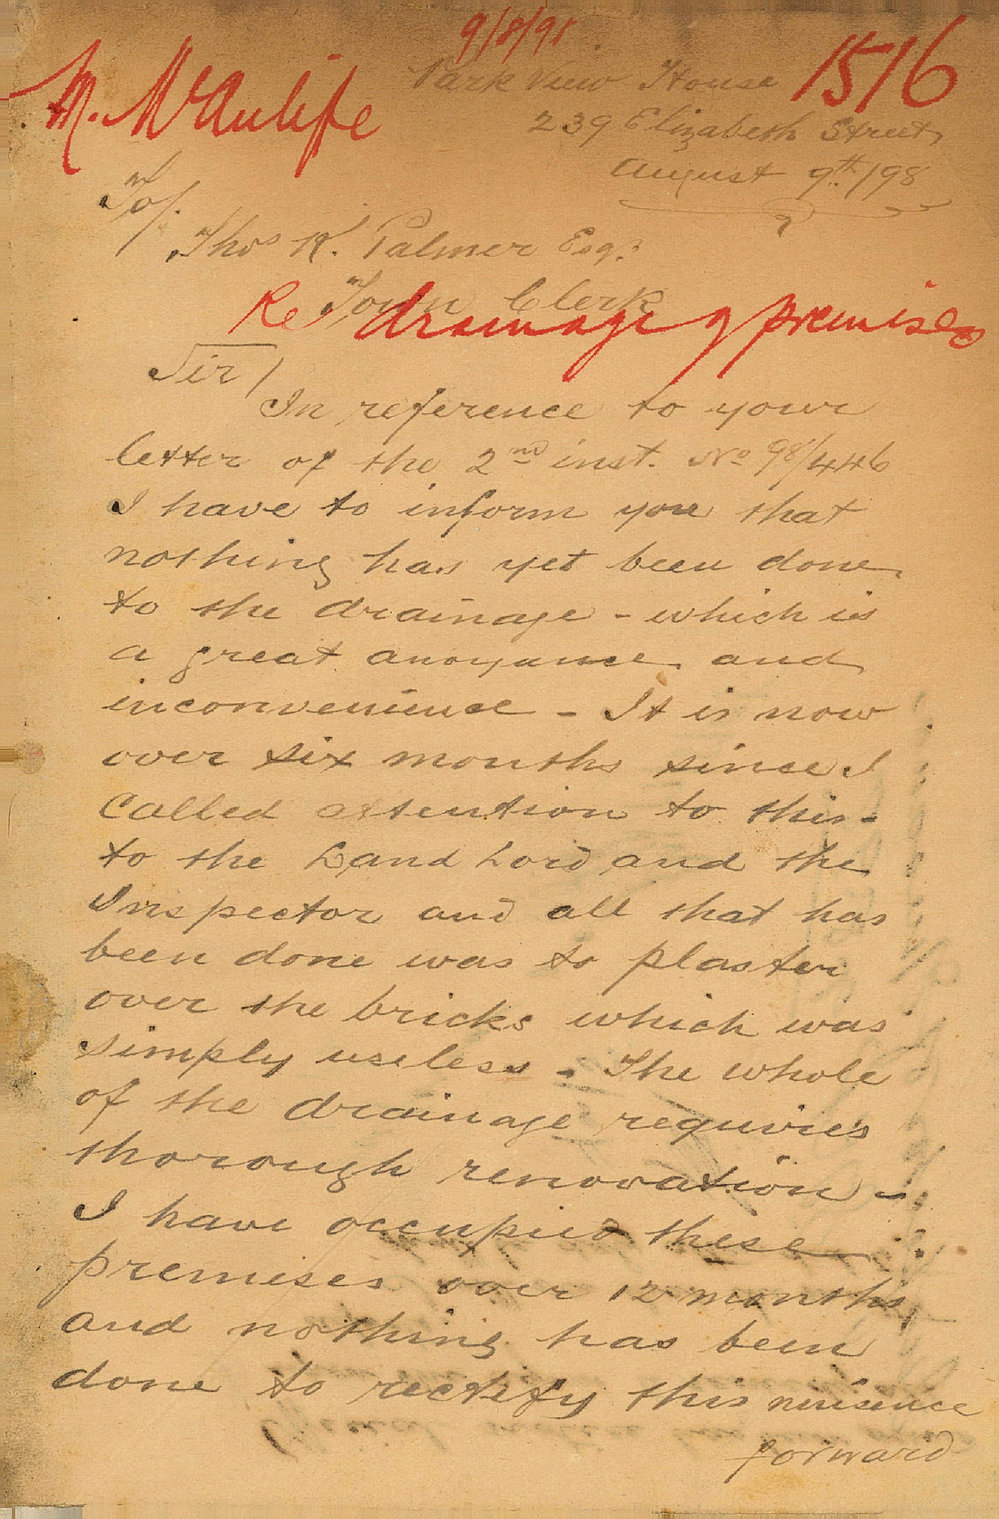 9/8/98
Park View House
1516
M. McAulife
239 Elizabeth Street
August 9th/98
To/.
Thos K. Palmer Esq:
Town Clerk
Re drainage of premises
Sir/
In reference to your
letter of the 2nd inst. No 98/446
I have to inform you that
nothing has yet been done
to the drainage - which is
a great anoyance and
inconvenience - It is now
over six months since I
Called attention to this -
to the Land Lord and the
Inspector and all that has
been done was to plaster
over the bricks which was
simply useless - The whole
of the drainage requires
thorough renovation -
I have occupied these
premises over 12 months
and nothing has been
done to rectify this nuisence
forward